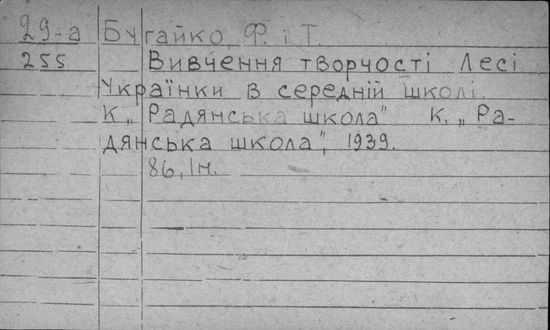 29-а Бугайко, Ф. і Т.
255 Вивчення творчості Лесі
Українки в середній школі.
К „Радянська школа" К. „Ра-
дянська школа", 1939.
86, Ін.